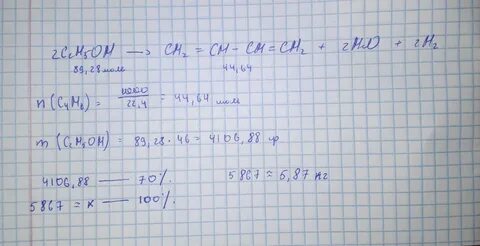 2C₂H₅OH → CH₂ = CH - CH = CH₂ + 2H₂O + 2H₂
89,28 моль 44,64
n (C₄H₆) = 1000/22,4 = 44,64 моль
m (C₂H₅OH) = 89,28 · 46 = 4106,88 гр
4106,88 — 70%. 5867 ≈ 5,87 кг
5867 = x — 100%.